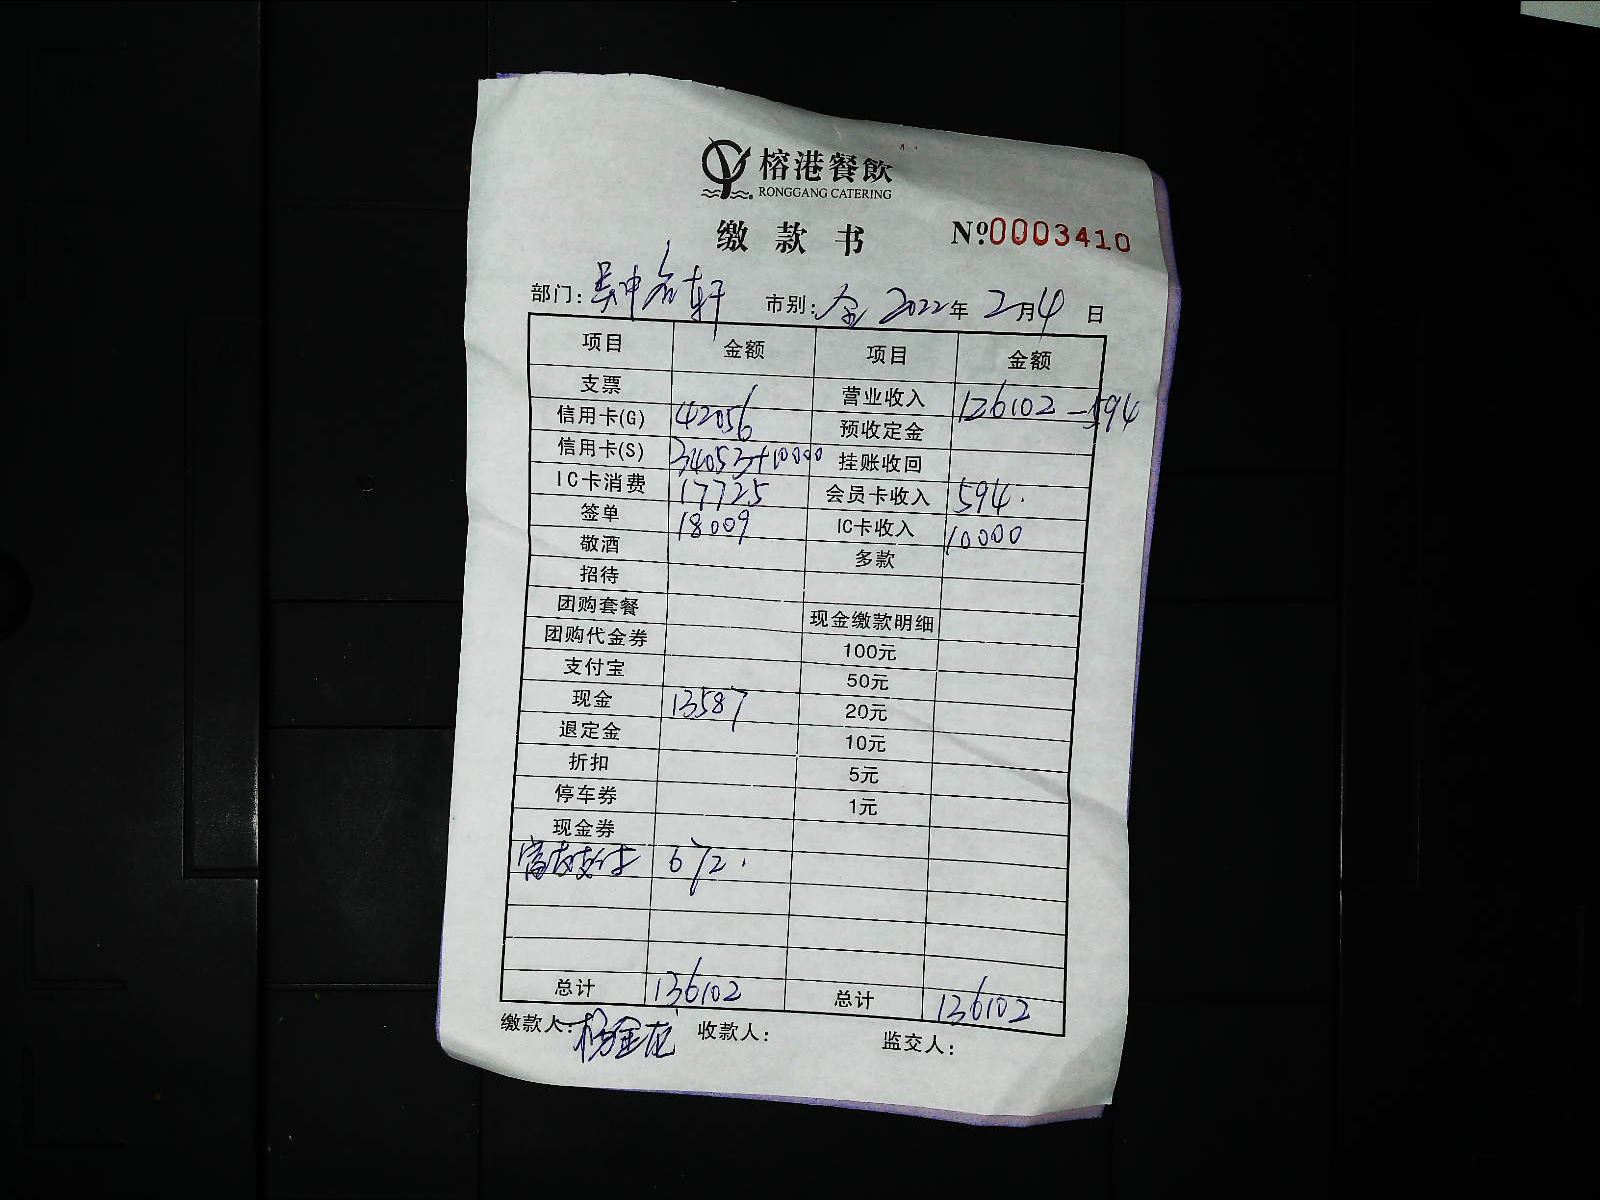 榕港餐飲
RONGGANG CATERING
缴款书 №0003410
部门: 吴中名轩 市别: 全 2022年 2月4日
项目 金额 项目 金额
支票 营业收入 126102-594
信用卡(G) 42056 预收定金
信用卡(S) 34053+10000 挂账收回
IC卡消费 17725 会员卡收入 594.
签单 18009 IC卡收入 10000
敬酒 多款
招待
团购套餐 现金缴款明细
团购代金券 100元
支付宝 50元
现金 13587 20元
退定金 10元
折扣 5元
停车券 1元
现金券
富友支付 672.
总计 136102 总计 136102
缴款人: 杨金花 收款人: 监交人: